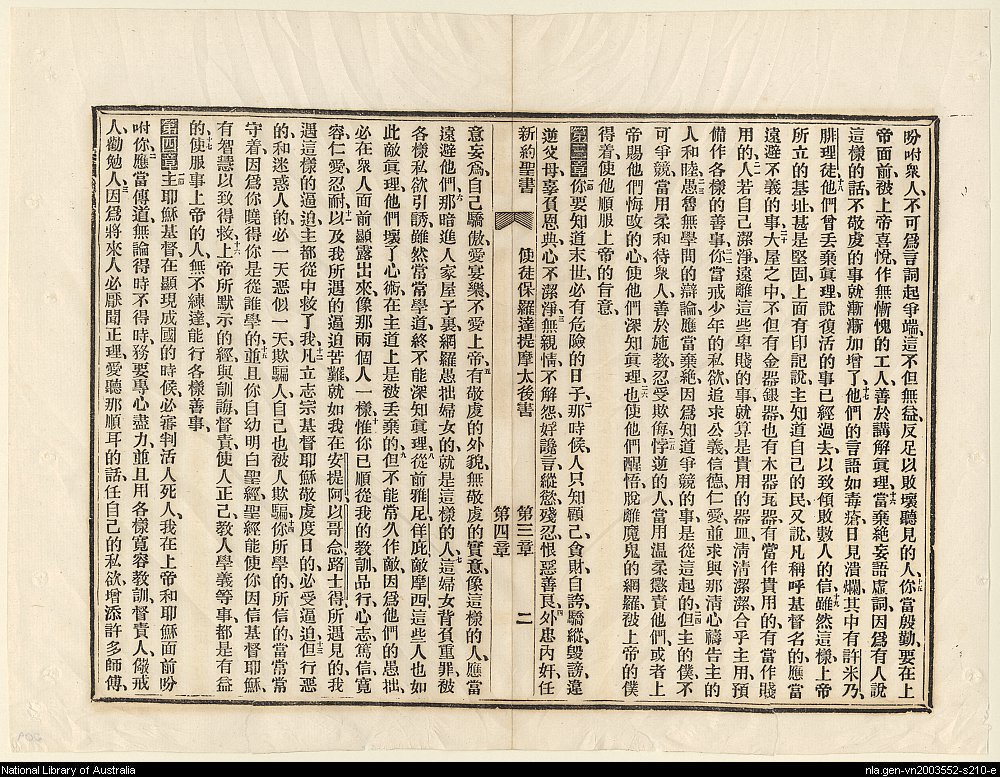 吩咐衆人不可爲言詞起爭端、這不但無益、反足以敗壞聽見的人、你當殷勤、要在上
帝面前被上帝喜悅、作無慚愧的工人、善於講解眞理、當棄絶妄語虛詞、因爲有人說
這樣的話、不敬虔的事就漸漸加增了、他們的言語如毒瘡日見潰爛、其中有許米乃、
腓理徒、他們曾丟棄眞理、說復活的事已經過去、以致傾敗數人的信、雖然這樣、上帝
所立的基址甚是堅固、上面有印記說、主知道自己的民、又說、凡稱呼基督名的、應當
遠避不義的事、大屋之中、不但有金器銀器、也有木器瓦器、有當作貴用的、有當作賤
用的、人若自己潔淨、遠離這些卑賤的事、就算是貴用的器皿、清清潔潔、合乎主用、預
備作各樣的善事、你當戒少年的私欲、追求公義信德仁愛、並求與那清心禱告主的
人和睦、愚魯無學問的辯論、應當棄絶、因爲知道爭競的事是從這起的、但主的僕不
可爭競、當用柔和待衆人、善於施敎、忍受欺侮、悖逆的人、當用温柔懲責他們、或者上
帝賜他們悔改的心、使他們深知眞理、也使他們醒悟、脫離魔鬼的網羅、被上帝的僕
得着、使他順服上帝的旨意、
第三章 你要知道末世必有危險的日子、那時候人只知顧己、貪財、自誇、驕縱、毀謗、違
逆父母、辜負恩典、心不潔淨、無親情、不解怨、好讒言、縱慾、殘忍、恨惡善良、外忠內奸、任
新約聖書 使徒保羅達提摩太後書 第三章 第四章 二
意妄爲、自己驕傲、愛宴樂不愛上帝、有敬虔的外貌、無敬虔的實意、像這樣的人、應當
遠避他們、那暗進人家屋子裏、網羅愚拙婦女的就是這樣的人、這婦女背負重罪、被
各樣私欲引誘、雖然常常學道、終不能深知眞理、從前雅尼佯庇敵摩西、這些人也如
此敵眞理、他們壞了心術、在主道上是被丟棄的、但不能常久作敵、因爲他們的愚拙
必在衆人面前顯露出來、像那兩個人一樣、惟你已順從我的敎訓、品行、心志、篤信、寬
容、仁愛、忍耐、以及我所遇的逼迫苦難、就如我在安提阿以哥念路士得所遇見的、我
遇這樣的逼迫、主都從中救了我、凡立志宗基督耶穌敬虔度日的、必受逼迫、但行惡
的和迷惑人的、必一天惡似一天、欺騙人、自己也被人欺騙、你所學的所信的、當常常
守着、因爲你曉得你是從誰學的、並且你自幼明白聖經、聖經能使你因信基督耶穌
有智慧以致得救、上帝所默示的經、與訓誨督責、使人正己、敎人學義等事、都是有益
的、使服事上帝的人、無不練達、能行各樣善事、
第四章 主耶穌基督在顯現成國的時候、必審判活人死人、我在上帝和耶穌面前吩
咐你、應當傳道、無論得時不得時、務要專心盡力、並且用各樣寬容敎訓、督責人、儆戒
人、勸勉人、因爲將來人必厭聞正理、愛聽那順耳的話、任自己的私欲、增添許多師傅、
National Library of Australia
nla.gen-vn2003552-s210-e